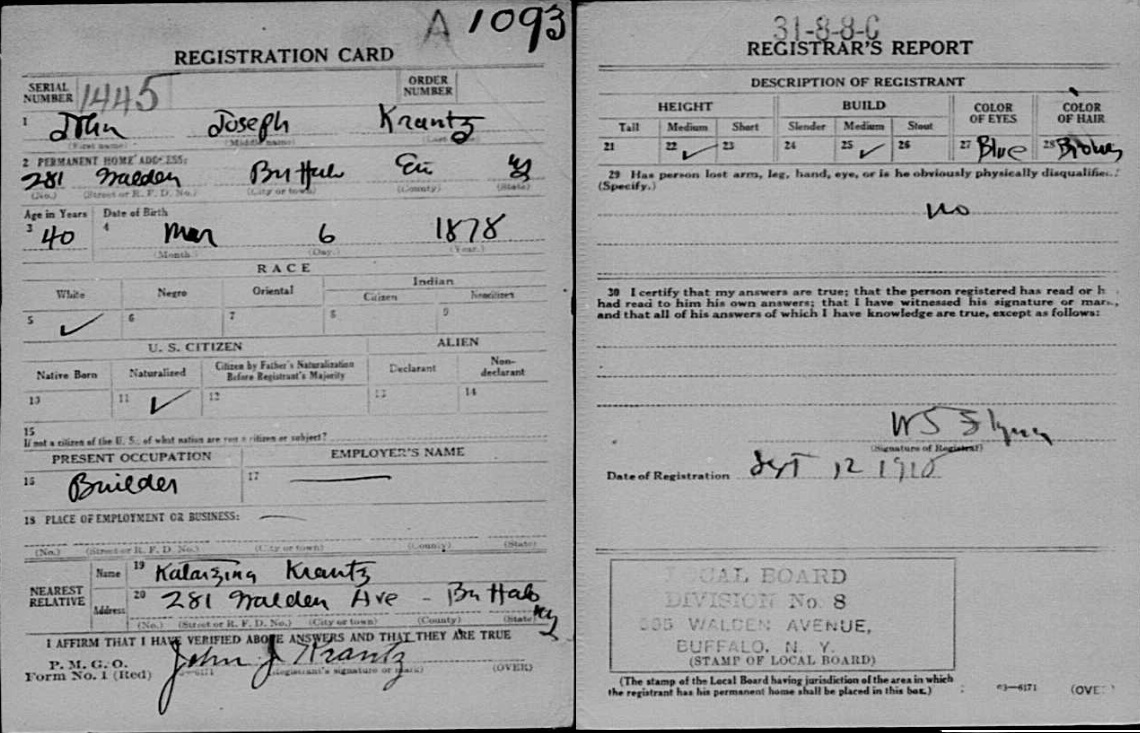 A 1093
REGISTRATION CARD
SERIAL NUMBER 1445 ORDER NUMBER
1 John Joseph Krantz
(First name) (Middle name) (Last name)
2 PERMANENT HOME ADDRESS:
281 Walden Buffalo Erie NY
(No.) (Street or R. F. D. No.) (City or town) (County) (State)
Age in Years Date of Birth
3 40 4 Mar 6 1878
(Month.) (Day.) (Year.)
RACE
White Negro Oriental Indian
Citizen Noncitizen
5 ✓ 6 7 8 9
U. S. CITIZEN ALIEN
Native Born Naturalized Citizen by Father's Naturalization Before Registrant's Majority Declarant Non-declarant
10 11 ✓ 12 13 14
15
If not a citizen of the U. S., of what nation are you a citizen or subject?
PRESENT OCCUPATION EMPLOYER'S NAME
16 Builder 17 —
18 PLACE OF EMPLOYMENT OR BUSINESS: —
(No.) (Street or R. F. D. No.) (City or town) (County) (State)
NEAREST RELATIVE Name 19 Katarzina Krantz
Address 20 281 Walden Ave - Buffalo NY
(No.) (Street or R. F. D. No.) (City or town) (County) (State)
I AFFIRM THAT I HAVE VERIFIED ABOVE ANSWERS AND THAT THEY ARE TRUE
P. M. G. O.
Form No. 1 (Red) John J Krantz
(Registrant's signature or mark) (OVER)
31-8-8-C
REGISTRAR'S REPORT
DESCRIPTION OF REGISTRANT
HEIGHT BUILD COLOR OF EYES COLOR OF HAIR
Tall Medium Short Slender Medium Stout
21 22 ✓ 23 24 25 ✓ 26 27 Blue 28 Brown
29 Has person lost arm, leg, hand, eye, or is he obviously physically disqualified?
(Specify.)
No
30 I certify that my answers are true; that the person registered has read or h
had read to him his own answers; that I have witnessed his signature or mark,
and that all of his answers of which I have knowledge are true, except as follows:
W S Flynn
(Signature of Registrar)
Date of Registration Sept 12 1918
LOCAL BOARD
DIVISION No. 8
WALDEN AVENUE,
BUFFALO, N. Y.
(STAMP OF LOCAL BOARD)
(The stamp of the Local Board having jurisdiction of the area in which
the registrant has his permanent home shall be placed in this box.)
03—6171 (OVER)